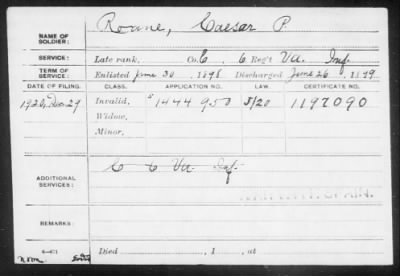 Roane, Caesar P.
NAME OF SOLDIER:
SERVICE: Late rank, Co. C, 6 Reg't Va. Inf.
TERM OF SERVICE: Enlisted June 30, 1898, Discharged June 26, 1899
DATE OF FILING. CLASS. APPLICATION NO. LAW. CERTIFICATE NO.
1920, Dec 29 Invalid, 1444950 5/20 1197090
Widow,
Minor,
C 6 Va. Inf.
ADDITIONAL SERVICES:
REMARKS:
Died , 1 , at